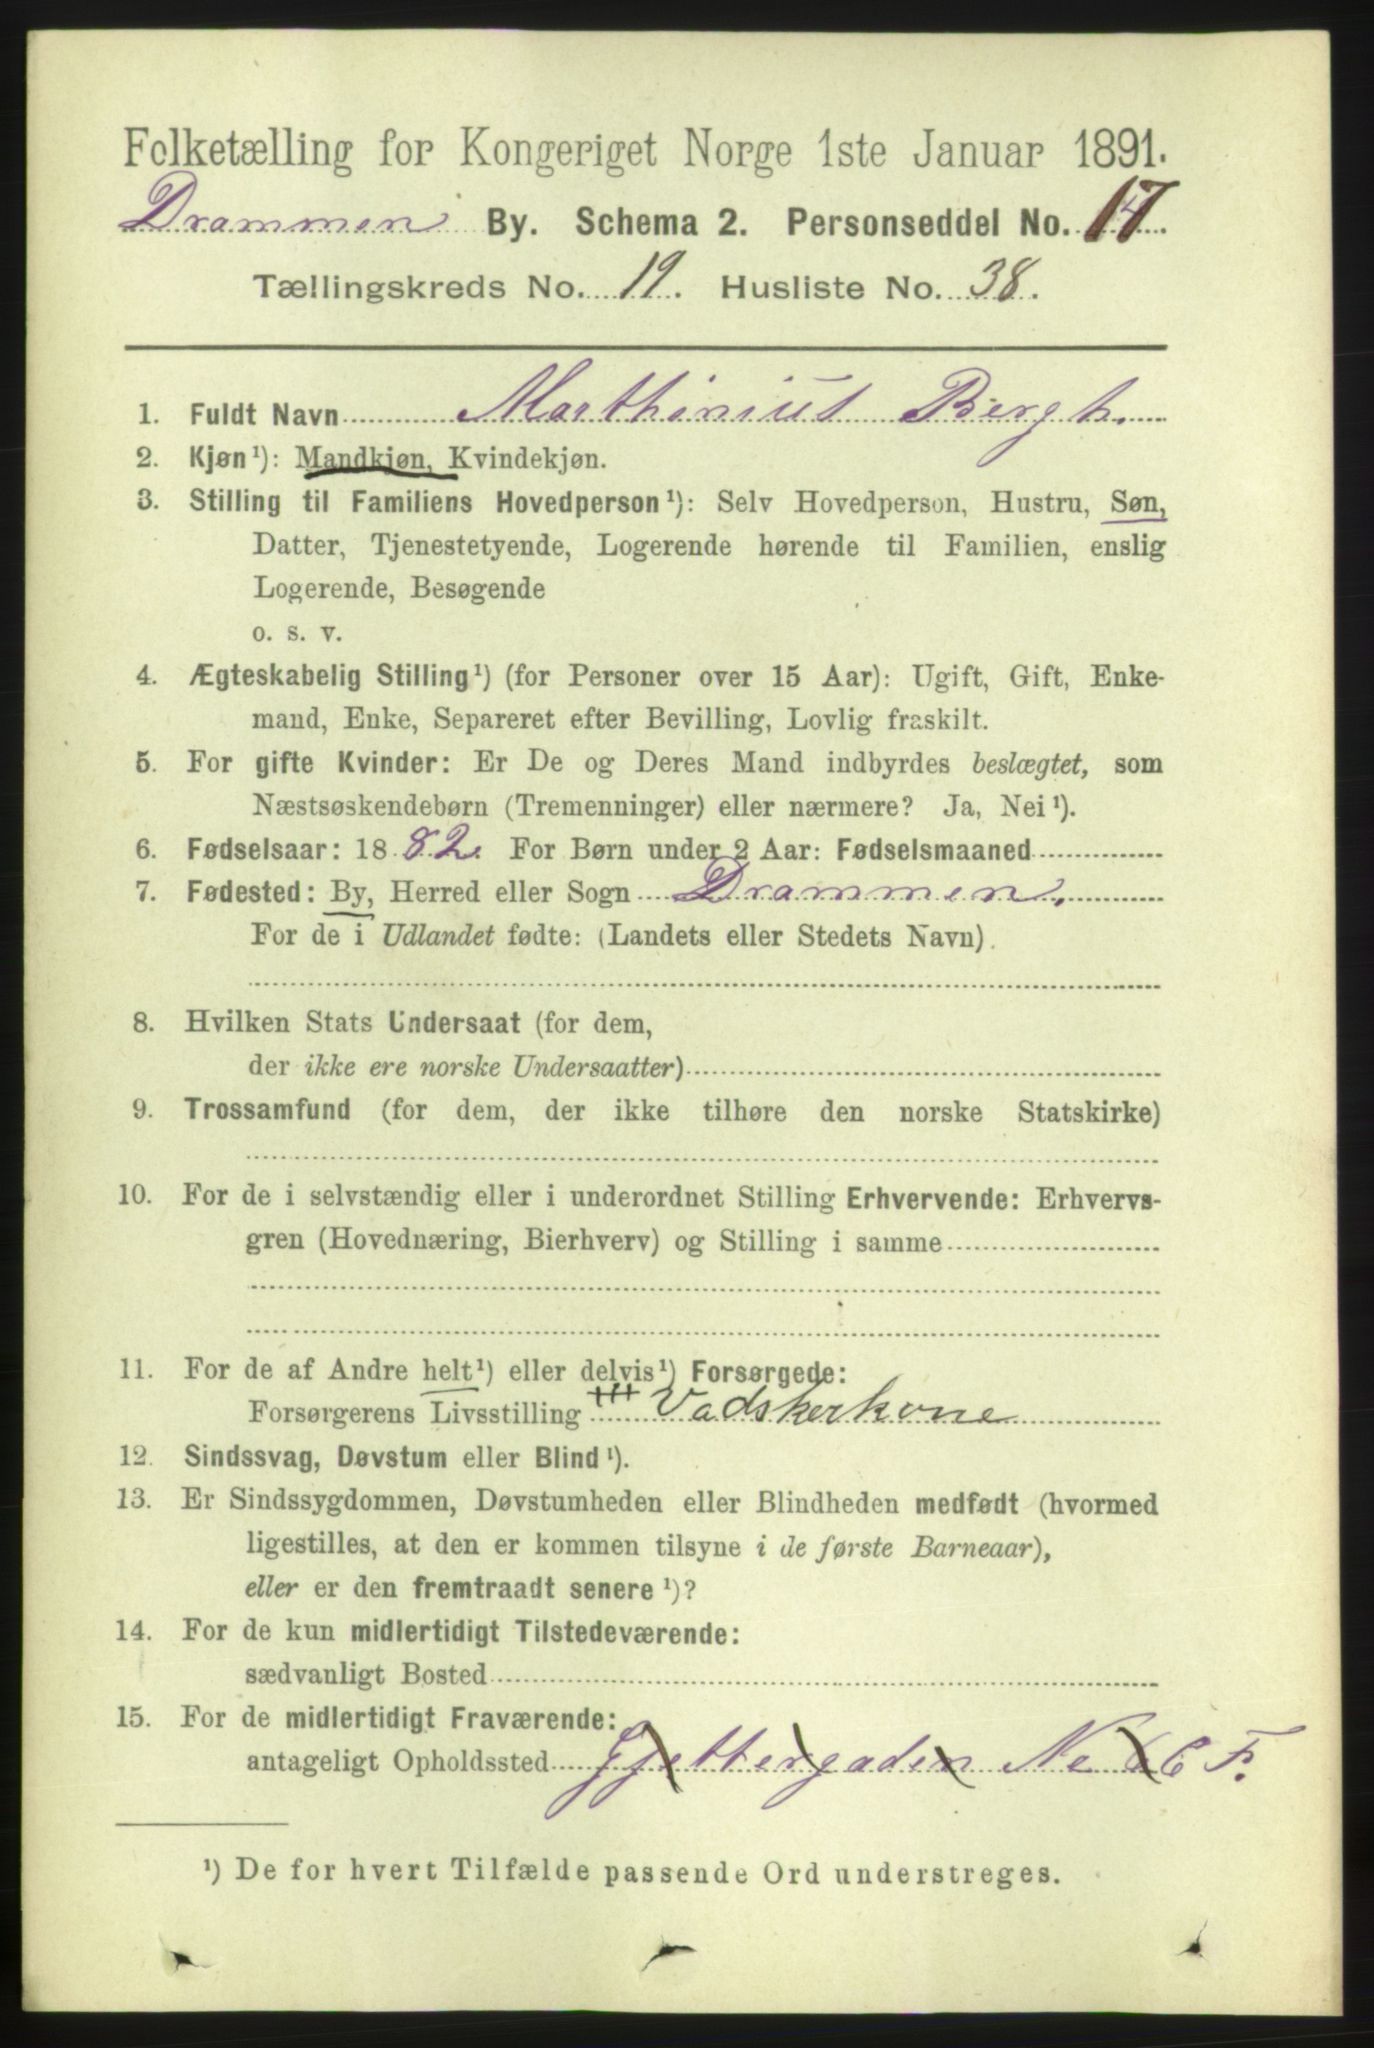 Folketælling for Kongeriget Norge 1ste Januar 1891.
Drammen By. Schema 2. Personseddel No. 17.
Tællingskreds No. 19. Husliste No. 38.
1. Fuldt Navn Marthinius Bergh.
2. Kjøn¹): Mandkjøn, Kvindekjøn.
3. Stilling til Familiens Hovedperson¹): Selv Hovedperson, Hustru, Søn,
Datter, Tjenestetyende, Logerende hørende til Familien, enslig
Logerende, Besøgende
o. s. v.
4. Ægteskabelig Stilling¹) (for Personer over 15 Aar): Ugift, Gift, Enke-
mand, Enke, Separeret efter Bevilling, Lovlig fraskilt.
5. For gifte Kvinder: Er De og Deres Mand indbyrdes beslægtet, som
Næstsøskendebørn (Tremenninger) eller nærmere? Ja, Nei¹).
6. Fødselsaar: 1882. For Børn under 2 Aar: Fødselsmaaned
7. Fødested: By, Herred eller Sogn Drammen.
For de i Udlandet fødte: (Landets eller Stedets Navn).
8. Hvilken Stats Undersaat (for dem,
der ikke ere norske Undersaatter)
9. Trossamfund (for dem, der ikke tilhøre den norske Statskirke)
10. For de i selvstændig eller i underordnet Stilling Erhvervende: Erhvervs-
gren (Hovednæring, Bierhverv) og Stilling i samme
11. For de af Andre helt¹) eller delvis¹) Forsørgede:
Forsørgerens Livsstilling Vadskerkone
12. Sindssvag, Døvstum eller Blind¹).
13. Er Sindssygdommen, Døvstumheden eller Blindheden medfødt (hvormed
ligestilles, at den er kommen tilsyne i de første Barneaar),
eller er den fremtraadt senere¹)?
14. For de kun midlertidigt Tilstedeværende:
sædvanligt Bosted
15. For de midlertidigt Fraværende:
antageligt Opholdssted Gjettergaden No 6 C F.
¹) De for hvert Tilfælde passende Ord understreges.